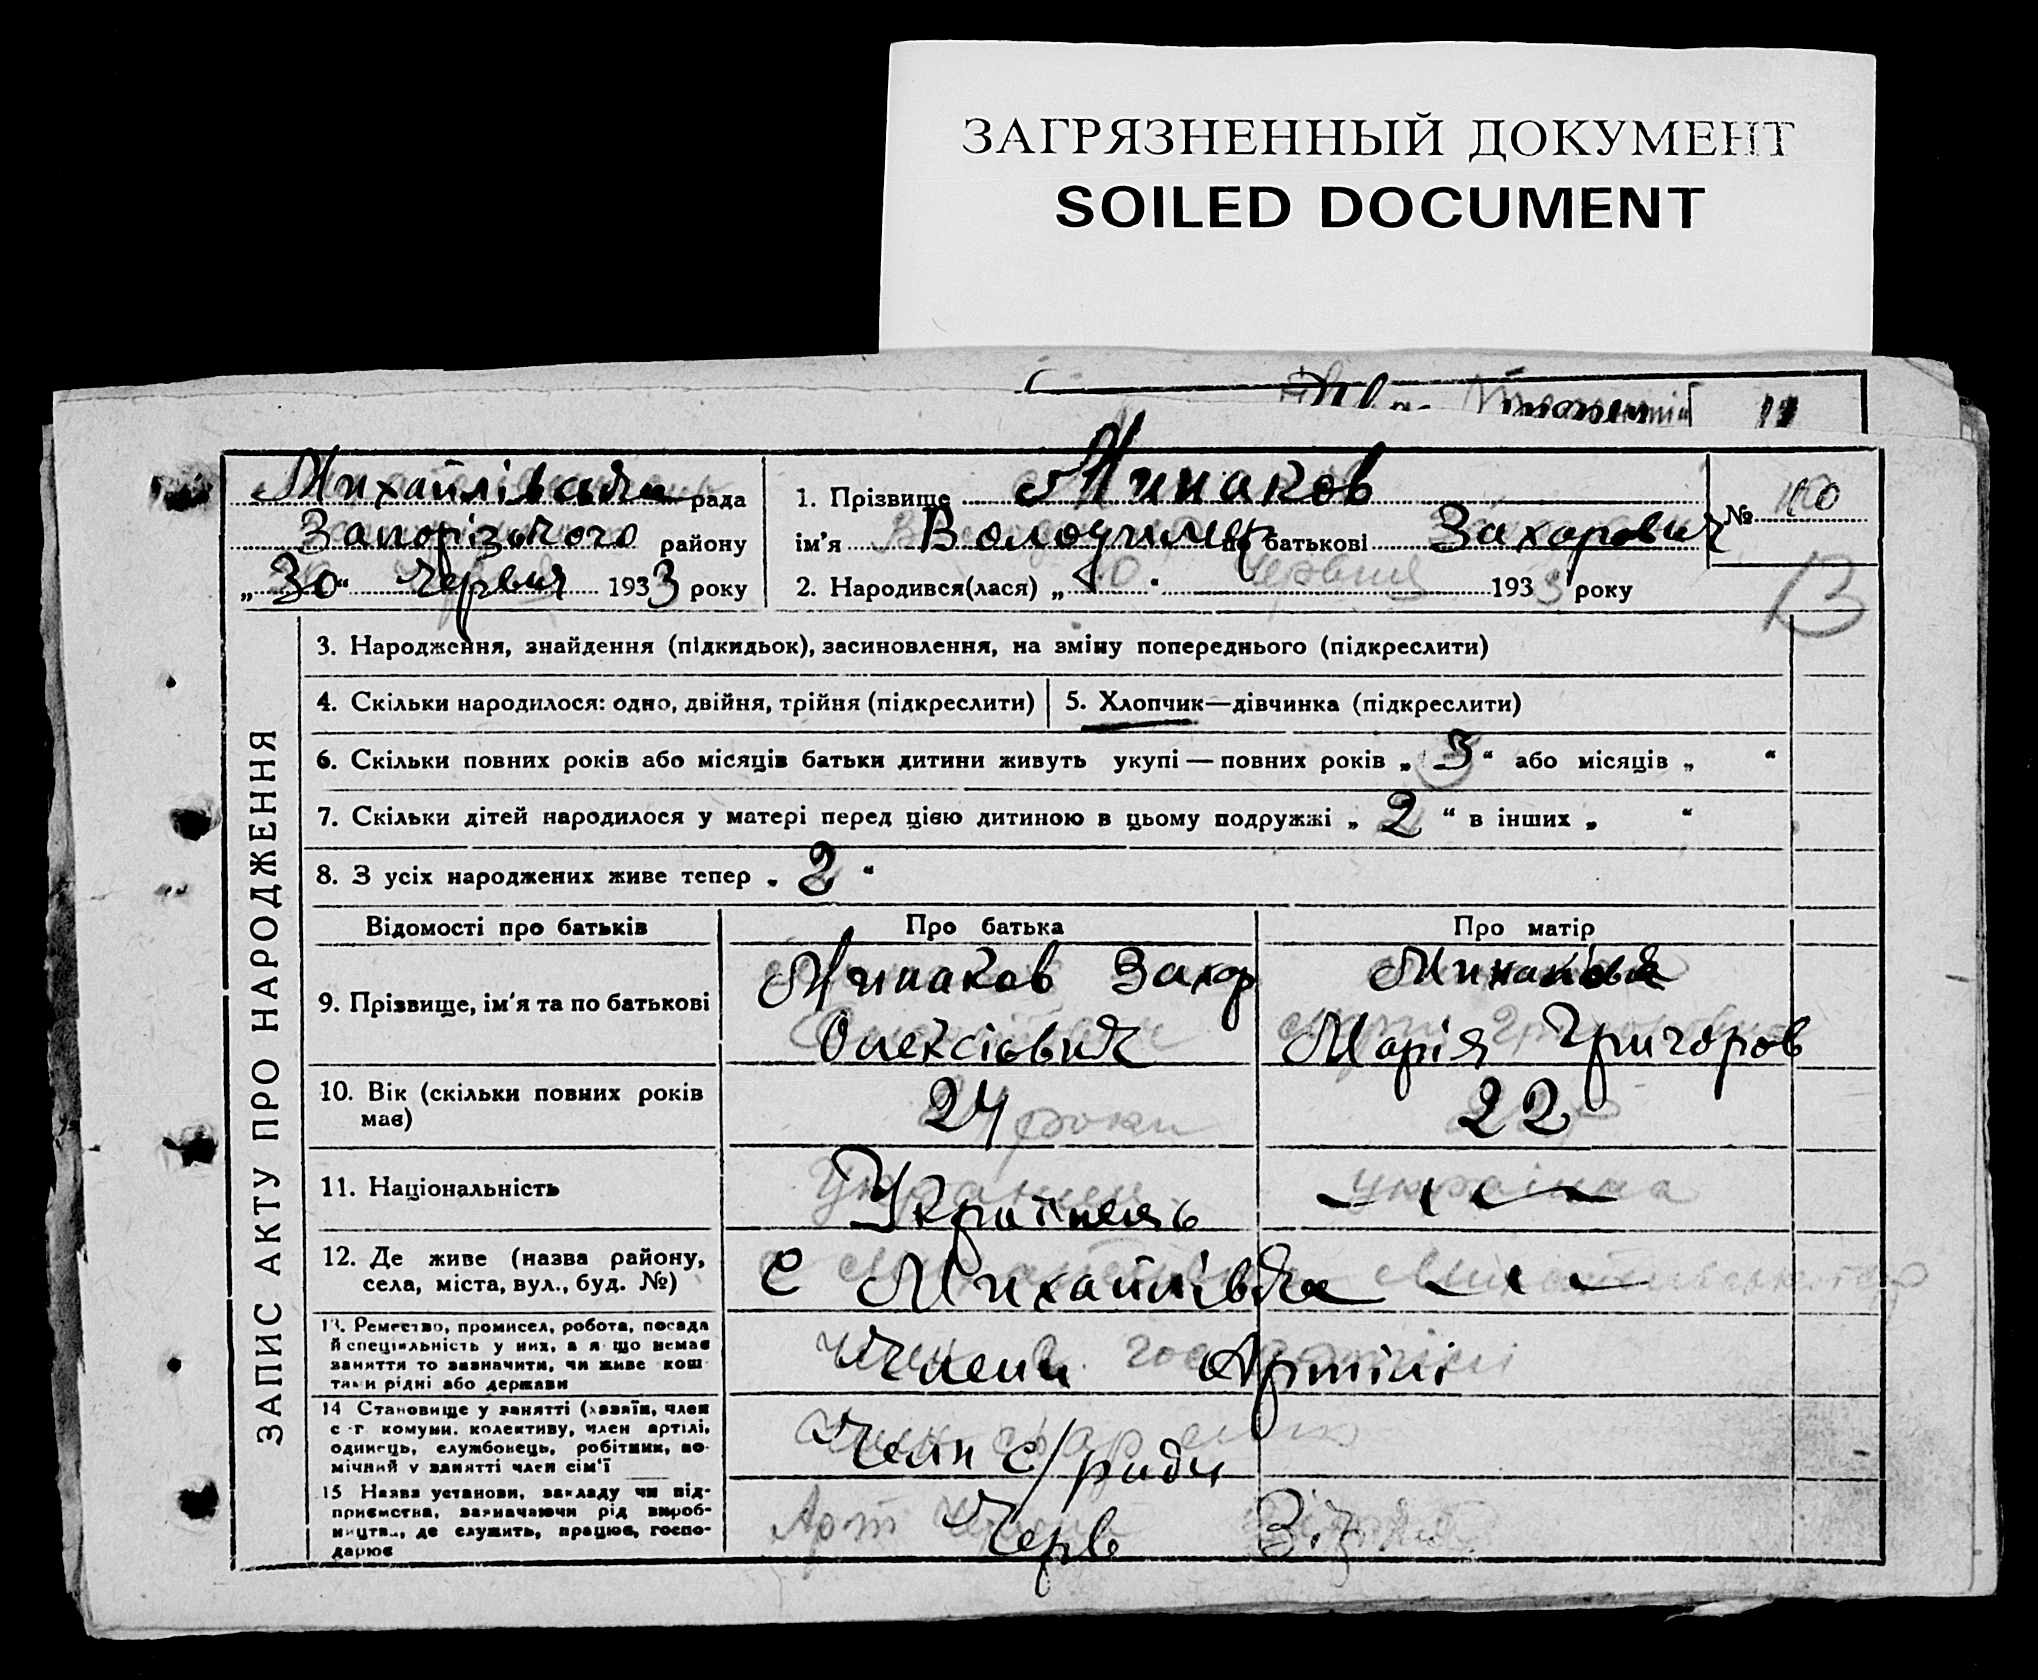 ЗАГРЯЗНЕННЫЙ ДОКУМЕНТ
SOILED DOCUMENT
Михайлівська рада
Запорізького району
„ 30 “ Червня 1933 року
1. Прізвище Минаков
ім'я Володимир по батькові Захарович
№ 100
2. Народився(лася) „ 10 “ червня 1933 року
13
ЗАПИС АКТУ ПРО НАРОДЖЕННЯ
3. Народження, знайдення (підкидьок), засиновлення, на зміну попереднього (підкреслити)
4. Скільки народилося: одно, двійня, трійня (підкреслити)
5. Хлопчик—дівчинка (підкреслити)
6. Скільки повних років або місяців батьки дитини живуть укупі — повних років „ 3 “ або місяців „ “
7. Скільки дітей народилося у матері перед цією дитиною в цьому подружжі „ 2 “ в інших „ “
8. З усіх народжених живе тепер „ 2 “
Відомості про батьків
Про батька
Про матір
9. Прізвище, ім'я та по батькові
Минаков Захар
Олексієвич
Минакова
Марія Григоров
10. Вік (скільки повних років
має)
24 роки
22
11. Національність
Українець
українка
12. Де живе (назва району,
села, міста, вул., буд. №)
с Михайлівка
13. Ремество, промисел, робота, посада
й спеціяльність у них, а я що немає
заняття то зазначити, чи живе кош
тами рідні або держави
Члени Артілі
14 Становище у занятті (хазяїн, член
с -г комуни, колективу, член артілі,
одинець, службовець, робітник, по-
мічний у занятті член сім'ї
Член с/ради
15 Назва установи, закладу чи під-
приємства, зазначаючи рід вироб-
ництва, де служить, працює, госпо-
дарює
Арт Черв